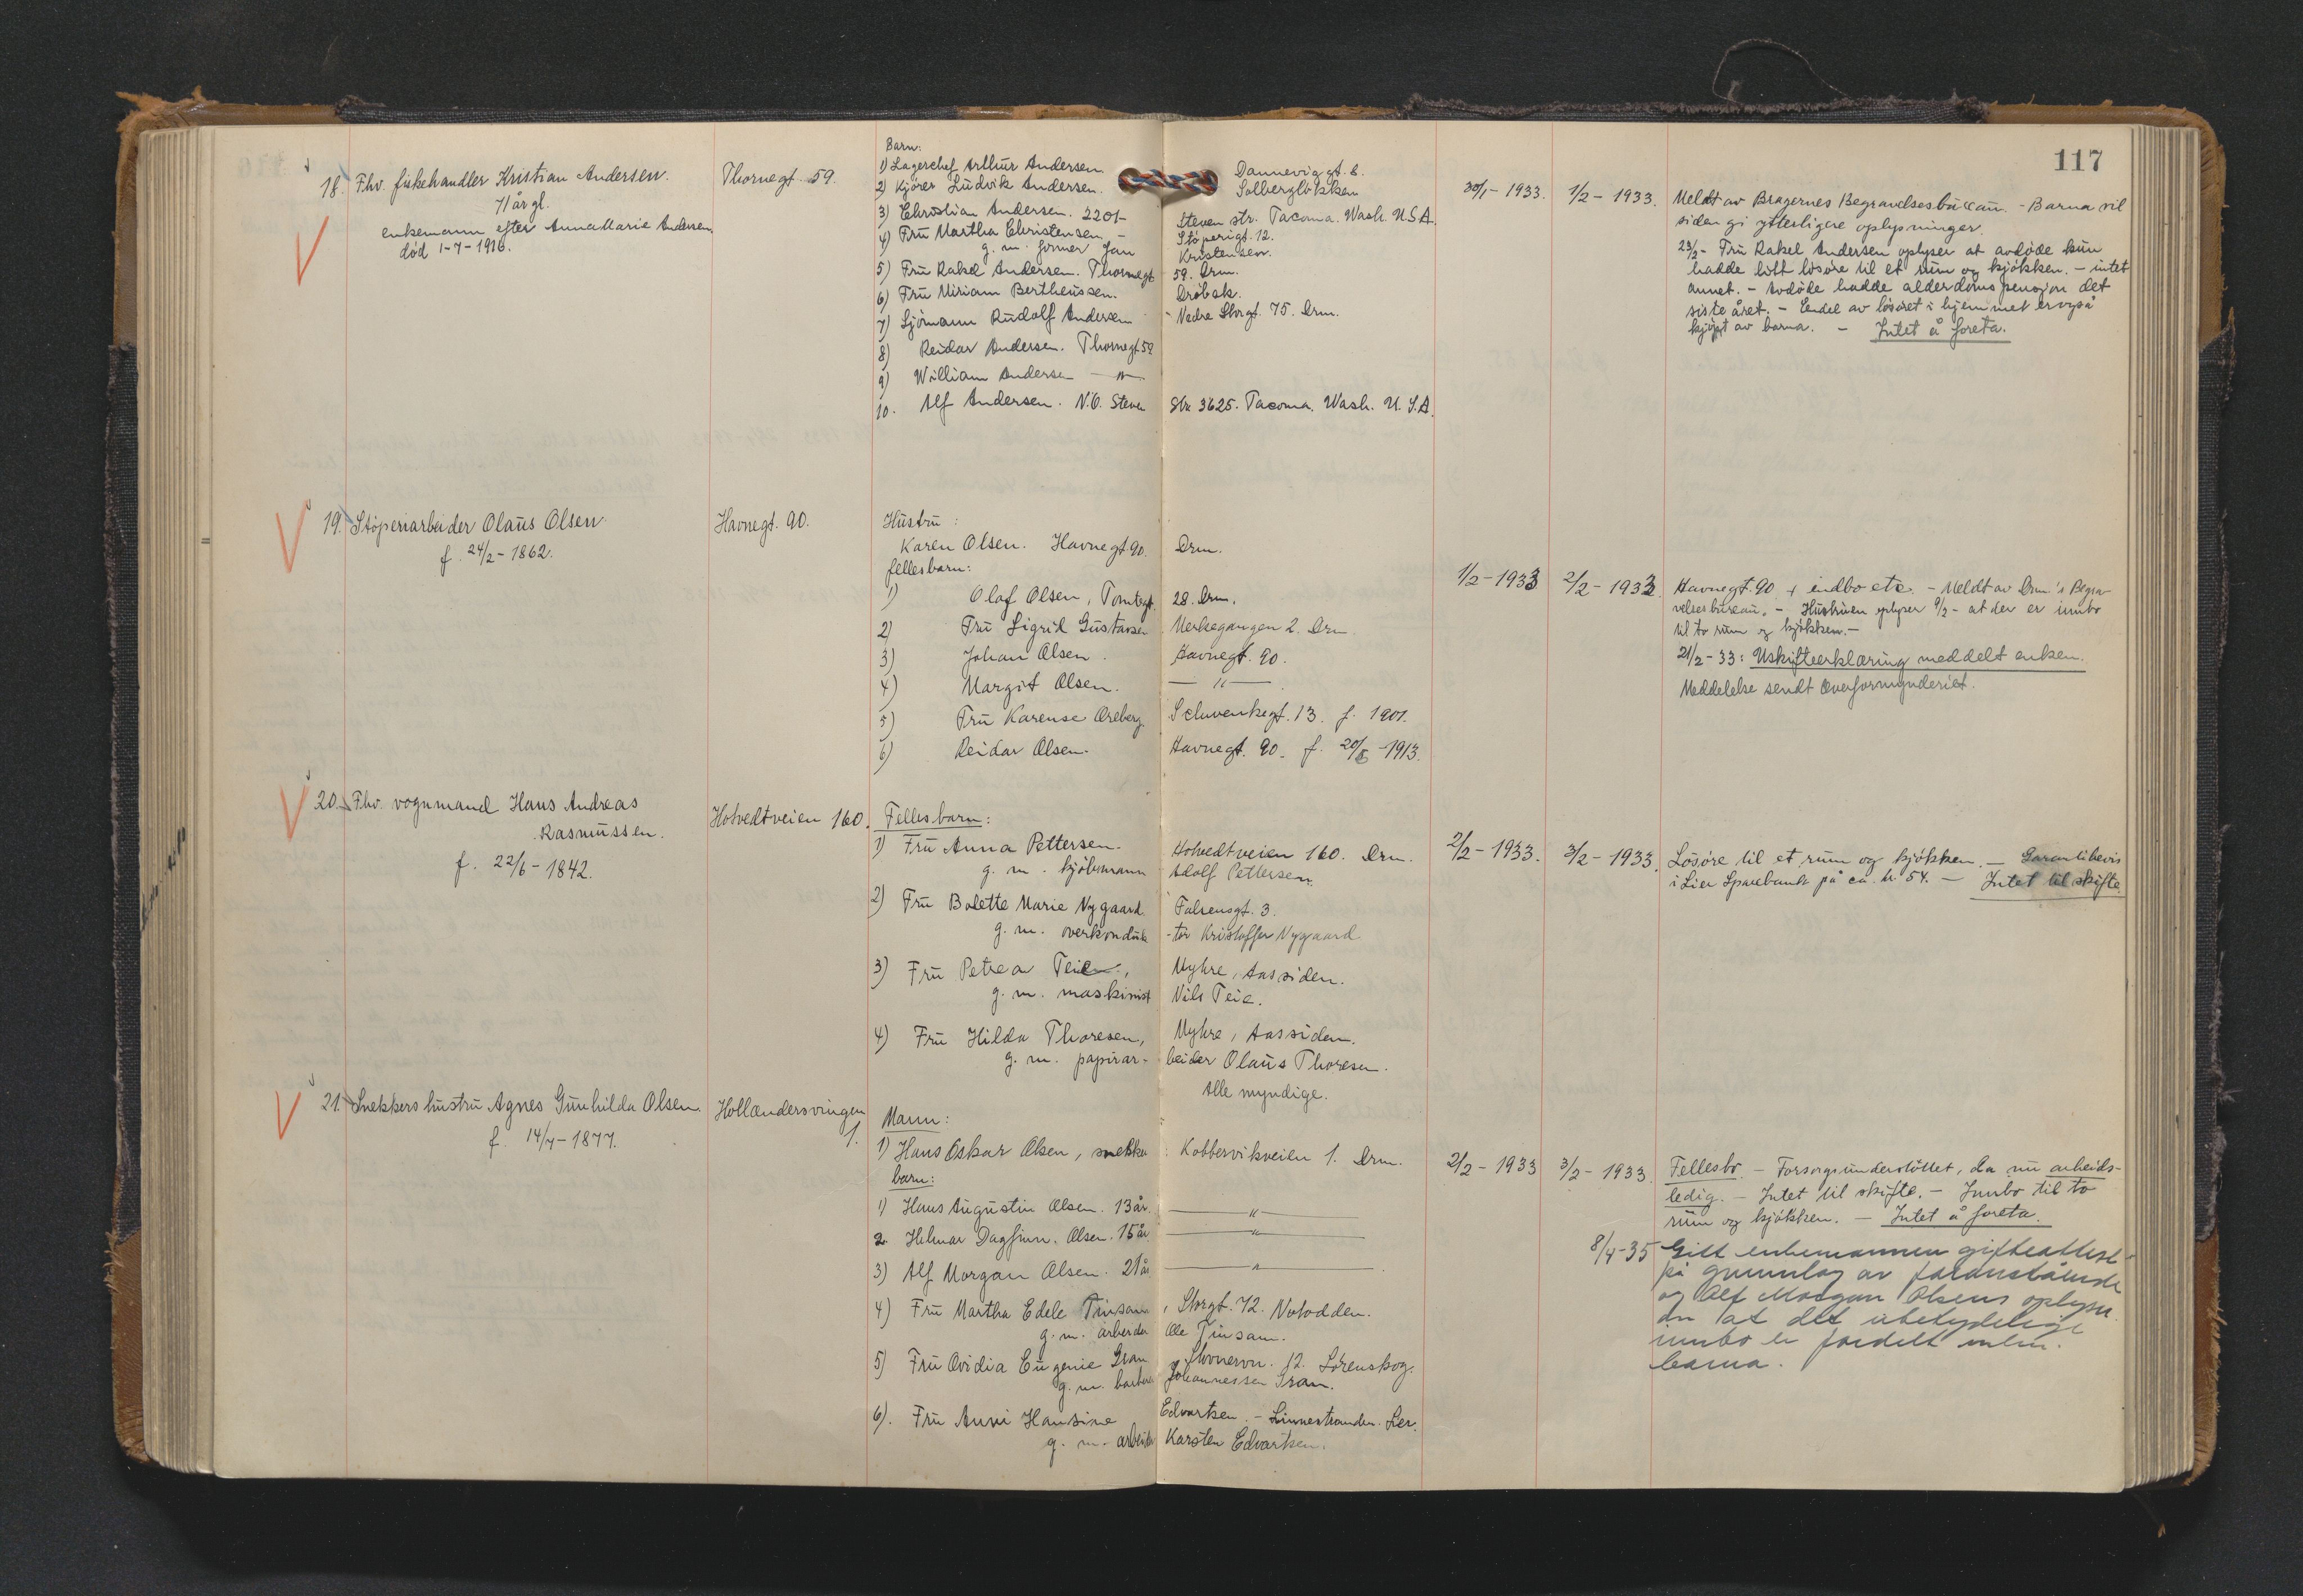 117
18. Fhv. fiskehandler Kristian Andersen.
71 år gl.
enkemann efter Anna Marie Andersen
død 1-7-1916.
Thornegt. 59.
Barn:
1) Lagerchef Arthur Andersen Dannevig gt. 6.
2) Kjører Ludvik Andersen. Solbergløkken
3) Christian Andersen. 2201- Steven str. Tacoma. Wash. U.S.A.
4) Fru Martha Christensen - Støperigt. 12.
g. m. former Jan Kristensen.
5) Fru Rakel Andersen. Thornegt 59. Drm.
6) Fru Miriam Bertheussen. Drøbak.
7) Sjømann Rudolf Andersen - Nedre Storgt. 75. Drm.
8) Reidar Andersen. Thornegt 59
9) William Andersen — " —
10. Alf Andersen. N.O. Steven Str. 3625. Tacoma. Wash. U.S.A.
30/1 - 1933. 1/2 - 1933.
Meldt av Bragernes Begravelsesbureau. - Barna vil
siden gi ytterligere oplysninger.
23/2 - Fru Rakel Andersen oplyser at avdøde kun
hadde litt løsøre til et rum og kjøkken. - intet
annet. - Avdøde hadde alderdomspensjon det
siste året. - Endel av løsøret i hjemmet er også
kjøpt av barna. - Intet å foreta.
19. Støperiarbeider Olaus Olsen.
f. 24/2 - 1862.
Havnegt. 90.
Hustru:
Karen Olsen. Havnegt 90. Drm.
fellesbarn:
1) Olaf Olsen, Tomtegt. 28. Drm.
2) Fru Sigrid Gustavsen Verksegangen 2. Drm
3) Johan Olsen. Havnegt. 90.
4) Margit Olsen. — " —
5) Fru Karense Oreberg. Schwenkegt. 13. f. 1901.
6) Reidar Olsen. Havnegt. 90. f. 20/5 - 1913.
1/2 - 1933 2/2 - 1933.
Havnegt. 90 + indbo etc. - Meldt av Drm's Begra-
velsesbureau. - Hustruen oplyser 9/2 - at der er innbo
til to rum og kjøkken. -
21/2 - 33: Uskifteerklæring meddelt enken.
Meddelelse sendt Overformynderiet.
20. Fhv. vognmand Hans Andreas
Rasmussen.
f. 22/6 - 1842.
Hotvedtveien 160.
Fellesbarn:
1) Fru Anna Pettersen. Hotvedtveien 160. Drm.
g. m. kjøbmann Adolf Pettersen.
2) Fru Bolette Marie Nygaard. Falsensgt. 3.
g. m. overkonduk-tør Kristoffer Nygaard
3) Fru Petrea Teie, Myhre, Aassiden.
g. m. maskinist Nils Teie.
4) Fru Hilda Thoresen, Myhre, Aassiden.
g. m. papirar-beider Olaus Thoresen.
Alle myndige.
2/2 - 1933. 3/2 - 1933.
Løsøre til et rum og kjøkken. - Garantibevis
i Lier Sparebank på ca. kr. 54. - Intet til skifte.
21. Snekkers hustru Agnes Gunhilda Olsen.
f. 14/7 - 1877.
Hollendersvingen
1.
Mann:
1) Hans Oskar Olsen, snekker Kobbervikveien 1. Drm.
barn:
1) Hans Augustin Olsen. 13 år. — " —
2. Helmar Dagfinn. Olsen. 15 år — " —
3) Alf Morgan Olsen. 21 år — " —
4) Fru Martha Edele Tinsam, Storgt. 72. Notodden.
g. m. arbeider Ole Tinsam.
5) Fru Ovidia Eugenie Gran 12. Lørenskog.
g. m. Johannessen Gran.
6). Fru Anni Hansine Edvartsen. - Linnestranden. Lier.
g. m. arbeider Karsten Edvartsen.
2/2 - 1933 3/2 - 1933.
Fellesbo. - Forsorgsunderstøttet, da nu arbeids-
ledig. - Intet til skifte. - Innbo til to
rum og kjøkken. - Intet å foreta.
8/4-35 Gitt enkemannen gifteattest
på grunnlag av foranstående
og Alf Morgan Olsens oplysn.
om at det ubetydelige
innbo er fordelt mlm.
barna.